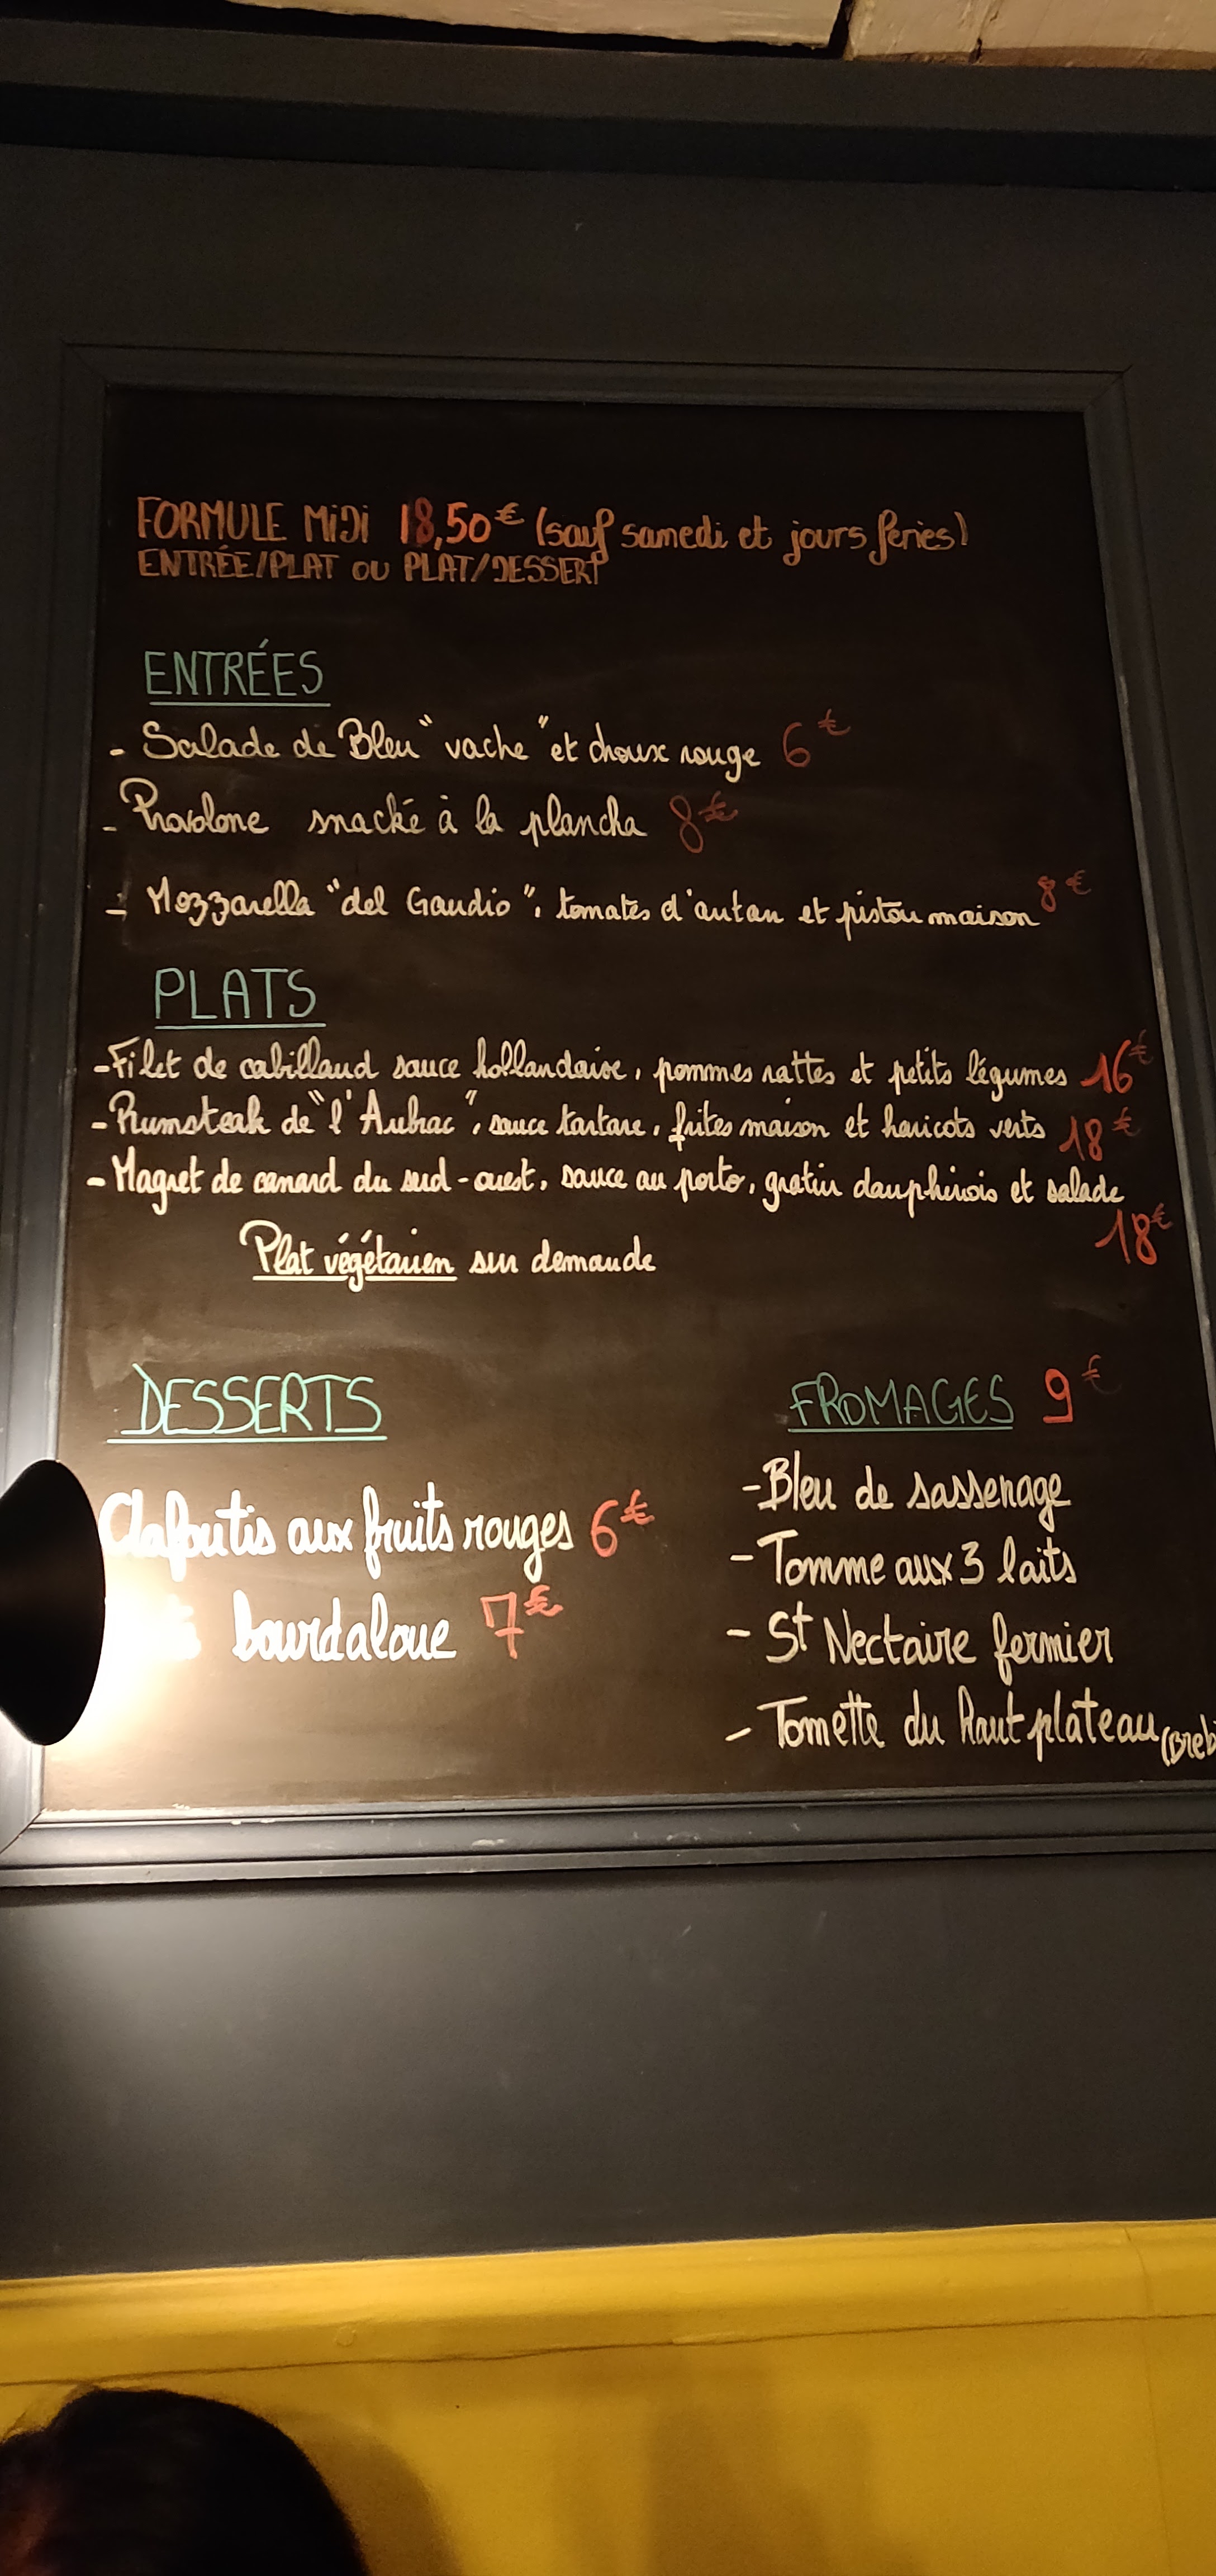 FORMULE MiDi 18,50€ (sauf samedi et jours feries)
ENTRÉE/PLAT OU PLAT/DESSERT
ENTRÉES
- Salade de Bleu "vache" et choux rouge 6€
- Provolone snacké à la plancha 8€
- Mozzarella "del Gaudio", tomates d'autan et pistou maison 8€
PLATS
- Filet de cabillaud sauce hollandaise, pommes rattes et petits légumes 16€
- Rumsteak de "l'Aubrac", sauce tartare, frites maison et haricots verts 18€
- Magret de canard du sud-ouest, sauce au porto, gratin dauphinois et salade
18€
Plat végétarien sur demande
DESSERTS
Clafoutis aux fruits rouges 6€
bourdaloue 7€
FROMAGES 9€
- Bleu de sassenage
- Tomme aux 3 laits
- St Nectaire fermier
- Tomette du haut plateau (Breb